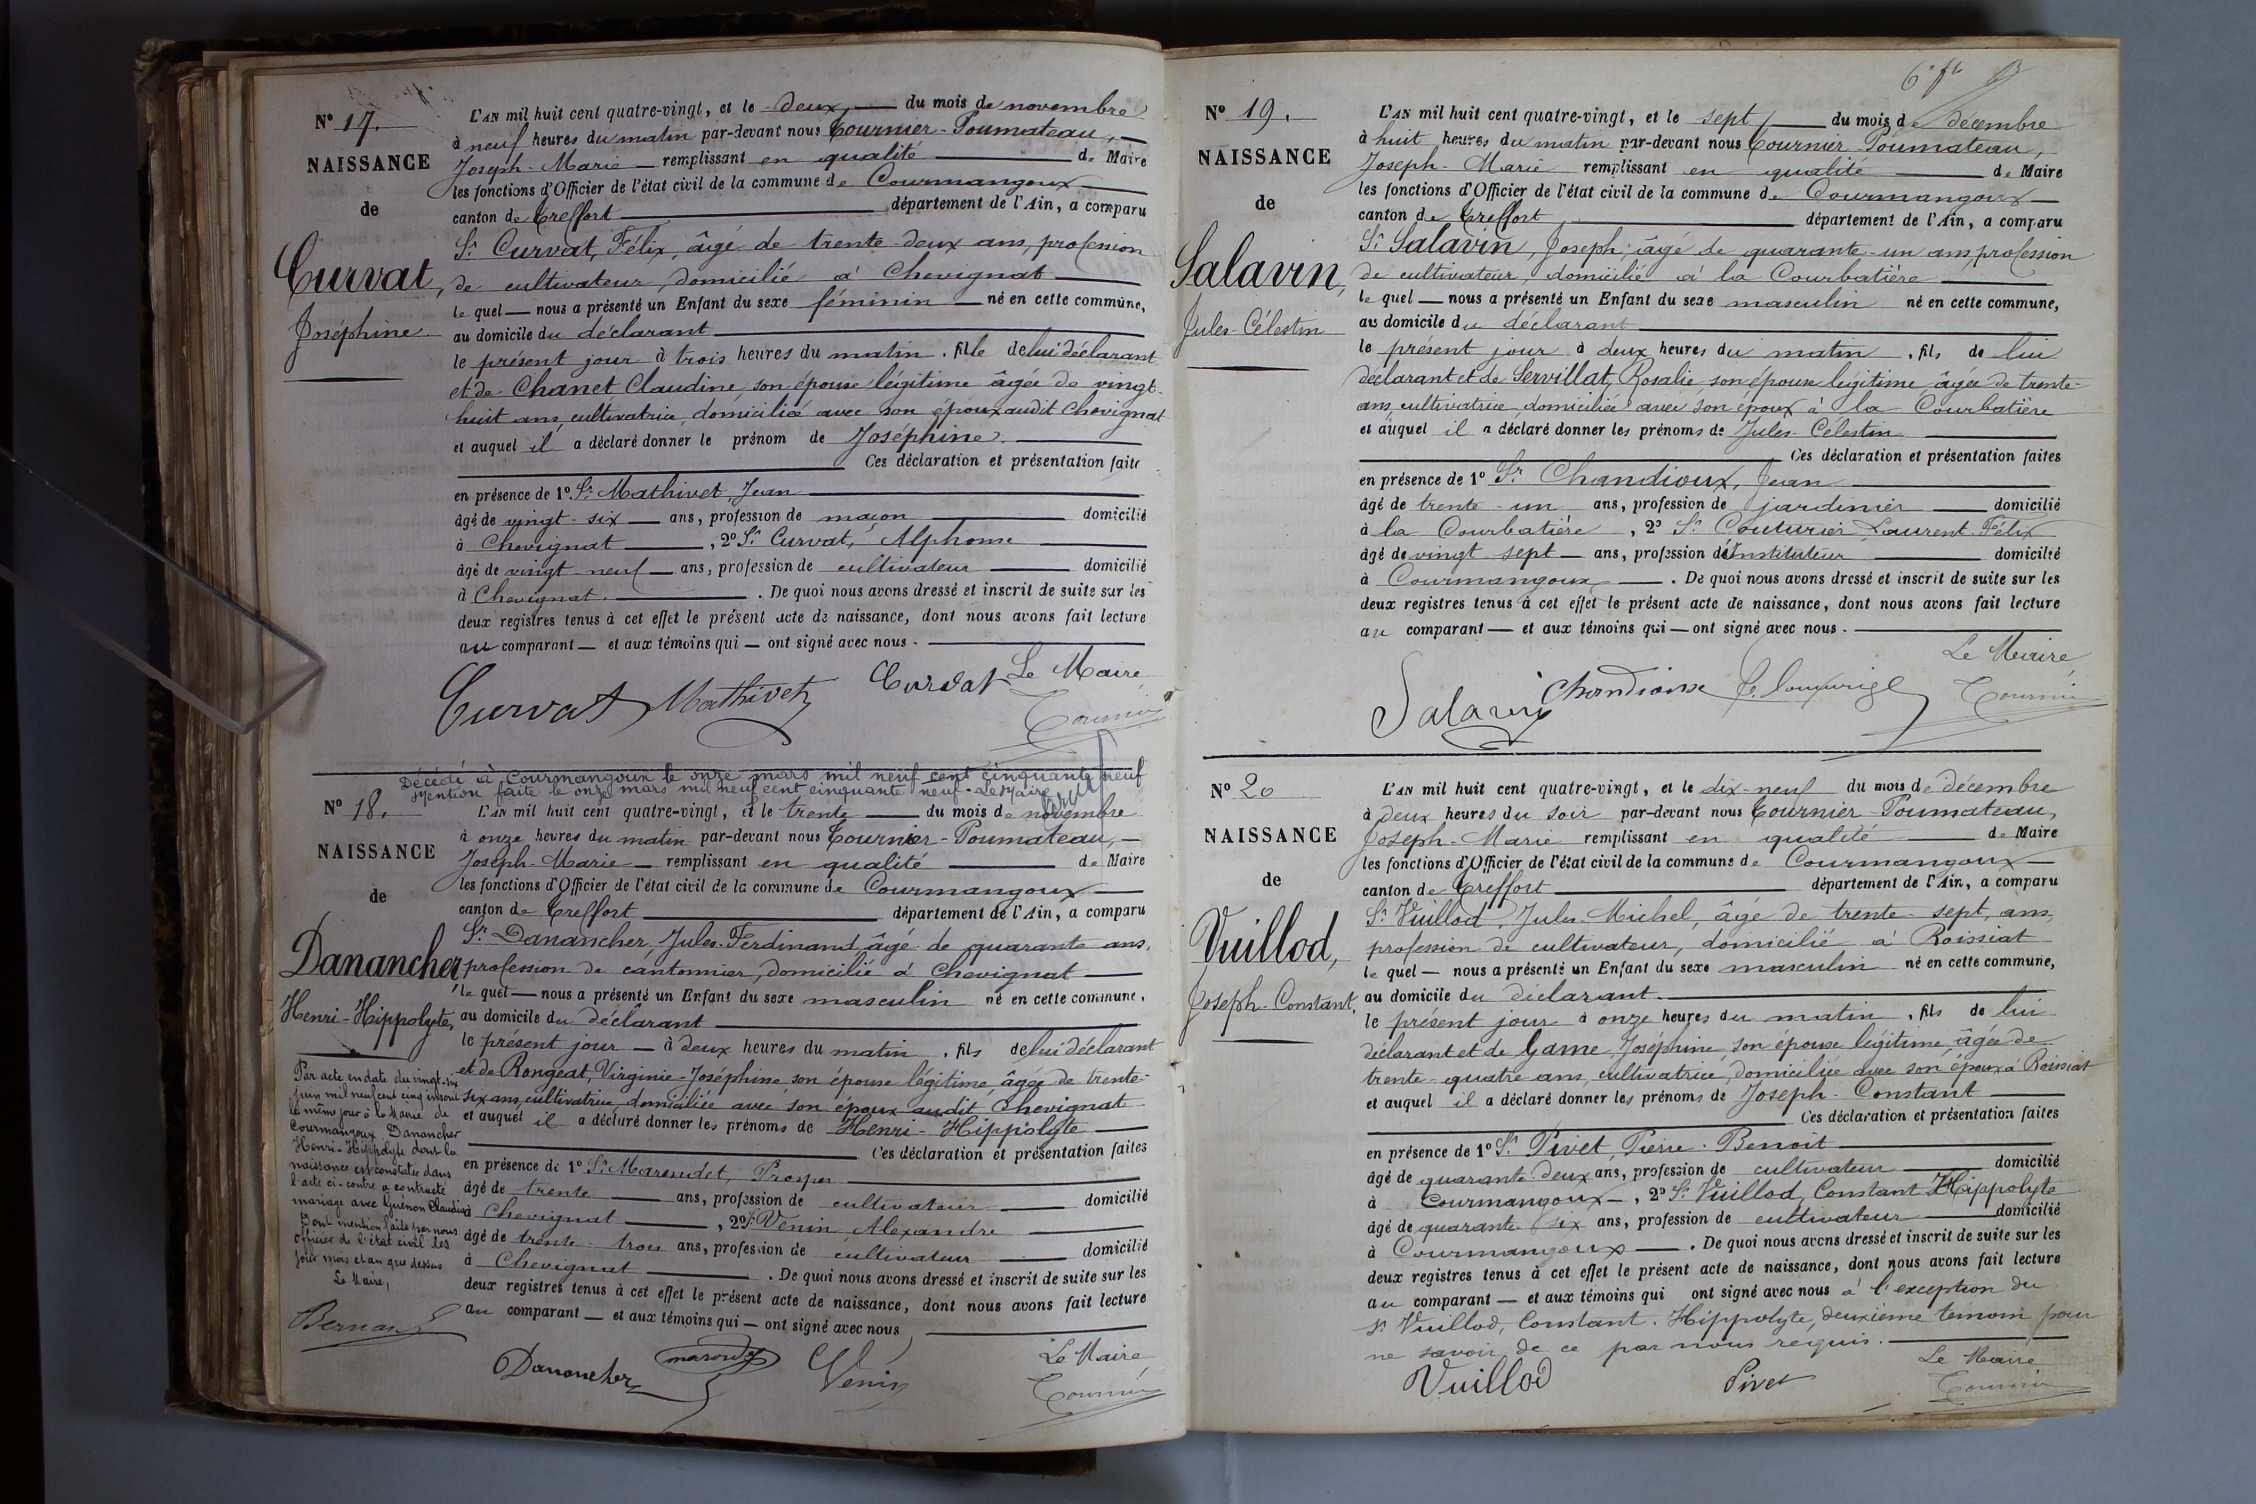 N° 17.
NAISSANCE
de
Curvat,
Joséphine
L'AN mil huit cent quatre-vingt, et le deux, du mois de novembre
à neuf heures du matin par-devant nous Tournier-Poumateau,
Joseph-Marie remplissant en qualité de Maire
les fonctions d'Officier de l'état civil de la commune de Courmangoux
canton de Treffort département de l'Ain, a comparu
Sr Curvat, Félix, âgé de trente-deux ans, profession
de cultivateur, domicilié à Chevignat
le quel nous a présenté un Enfant du sexe féminin né en cette commune,
au domicile du déclarant
le présent jour à trois heures du matin, fille de lui déclarant
et de Chanet Claudine son épouse légitime âgée de vingt-
huit ans, cultivatrice, domiciliée avec son époux audit Chevignat
et auquel il a déclaré donner le prénom de Joséphine.
Ces déclaration et présentation faite
en présence de 1° Sr Mathivet, Jean
âgé de vingt-six ans, profession de maçon domicilié
à Chevignat, 2° Sr Curvat, Alphonse
âgé de vingt neuf ans, profession de cultivateur domicilié
à Chevignat. De quoi nous avons dressé et inscrit de suite sur les
deux registres tenus à cet effet le présent acte de naissance, dont nous avons fait lecture
au comparant et aux témoins qui ont signé avec nous.
Le Maire
Curvat Mathivet Curvat Tournier
Décédé à Courmangoux le onze mars mil neuf cent cinquante neuf
Mention faite le onze mars mil neuf cent cinquante neuf. Le Maire
N° 18.
NAISSANCE
de
Danancher,
Henri-Hippolyte,
L'AN mil huit cent quatre-vingt, et le trente du mois de novembre
à onze heures du matin par-devant nous Tournier-Poumateau,
Joseph-Marie remplissant en qualité de Maire
les fonctions d'Officier de l'état civil de la commune de Courmangoux
canton de Treffort département de l'Ain, a comparu
Sr Danancher, Jules-Ferdinand âgé de quarante ans,
profession de cantonnier, domicilié à Chevignat
le quel nous a présenté un Enfant du sexe masculin né en cette commune,
au domicile du déclarant
le présent jour à deux heures du matin, fils de lui déclarant
et de Rongeat, Virginie-Joséphine son épouse légitime, âgée de trente-
six ans, cultivatrice, domiciliée avec son époux audit Chevignat
et auquel il a déclaré donner les prénoms de Henri-Hippolyte
Ces déclaration et présentation faites
en présence de 1° Sr Marendet, Prosper
âgé de trente ans, profession de cultivateur domicilié
à Chevignat, 2° Sr Venin, Alexandre
âgé de trente-trois ans, profession de cultivateur domicilié
à Chevignat. De quoi nous avons dressé et inscrit de suite sur les
deux registres tenus à cet effet le présent acte de naissance, dont nous avons fait lecture
au comparant et aux témoins qui ont signé avec nous,
Le Maire
Danancher Venin Tournier
Par acte en date du vingt-six
juin mil neuf cent cinq inscrit
le même jour à la Mairie de
Courmangoux Danancher
Henri-Hippolyte dont la
naissance est constatée dans
l'acte ci-contre a contracté
mariage avec Guénon Claudia
Dont mention faite par nous
officier de l'état civil les
jour mois et an que dessus
Le Maire,
N° 19.
NAISSANCE
de
Salavin,
Jules-Célestin
L'AN mil huit cent quatre-vingt, et le sept du mois de décembre
à huit heures du matin par-devant nous Tournier-Poumateau,
Joseph-Marie remplissant en qualité de Maire
les fonctions d'Officier de l'état civil de la commune de Courmangoux
canton de Treffort département de l'Ain, a comparu
Sr Salavin, Joseph, âgé de quarante-un ans, profession
de cultivateur, domicilié à la Courbatière
le quel nous a présenté un Enfant du sexe masculin né en cette commune,
au domicile du déclarant
le présent jour à deux heures du matin, fils de lui
déclarant et de Servillat, Rosalie son épouse légitime âgée de trente-
ans, cultivatrice, domiciliée avec son époux à la Courbatière
et auquel il a déclaré donner les prénoms de Jules-Célestin
Ces déclaration et présentation faites
en présence de 1° Sr Chandioux, Jean
âgé de trente-un ans, profession de jardinier domicilié
à la Courbatière, 2° Sr Couturier Laurent-Félix
âgé de vingt sept ans, profession d'instituteur domicilié
à Courmangoux. De quoi nous avons dressé et inscrit de suite sur les
deux registres tenus à cet effet le présent acte de naissance, dont nous avons fait lecture
au comparant et aux témoins qui ont signé avec nous.
Le Maire
Salavin Tournier
N° 20
NAISSANCE
de
Vuillod,
Joseph-Constant.
L'AN mil huit cent quatre-vingt, et le dix-neuf du mois de décembre
à deux heures du soir par-devant nous Tournier-Poumateau,
Joseph-Marie remplissant en qualité de Maire
les fonctions d'Officier de l'état civil de la commune de Courmangoux
canton de Treffort département de l'Ain, a comparu
Sr Vuillod, Jules-Michel, âgé de trente-sept, ans,
profession de cultivateur, domicilié à Roissiat
le quel nous a présenté un Enfant du sexe masculin né en cette commune,
au domicile du déclarant.
le présent jour à onze heures du matin, fils de lui
déclarant et de Game, Joséphine son épouse légitime, âgée de
trente-quatre ans, cultivatrice, domiciliée avec son époux à Roissiat
et auquel il a déclaré donner les prénoms de Joseph-Constant
Ces déclaration et présentation faites
en présence de 1° Sr Pivet, Pierre-Benoit
âgé de quarante deux ans, profession de cultivateur domicilié
à Courmangoux, 2° Sr Vuillod, Constant Hippolyte
âgé de quarante-six ans, profession de cultivateur domicilié
à Courmangoux. De quoi nous avons dressé et inscrit de suite sur les
deux registres tenus à cet effet le présent acte de naissance, dont nous avons fait lecture
au comparant et aux témoins qui ont signé avec nous à l'exception du
Sr Vuillod, Constant-Hippolyte, deuxième témoin pour
ne savoir de ce par nous requis.
Le Maire
Vuillod Pivet Tournier